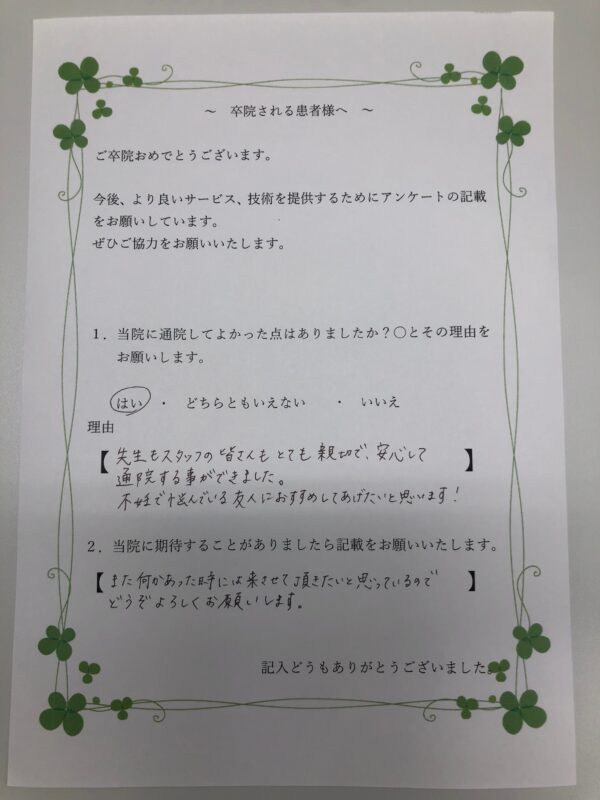 ～　卒院される患者様へ　～
ご卒院おめでとうございます。
今後、より良いサービス、技術を提供するためにアンケートの記載
をお願いしています。
ぜひご協力をお願いいたします。
１．当院に通院してよかった点はありましたか？〇とその理由を
お願いします。
はい　・　どちらともいえない　　・　いいえ
理由
【先生もスタッフの皆さんもとても親切で、安心して】
通院する事ができました。
不妊で悩んでいる友人におすすめしてあげたいと思います！
２．当院に期待することがありましたら記載をお願いいたします。
【また何かあった時には来させて頂きたいと思っているので】
どうぞよろしくお願いします。
記入どうもありがとうございました。